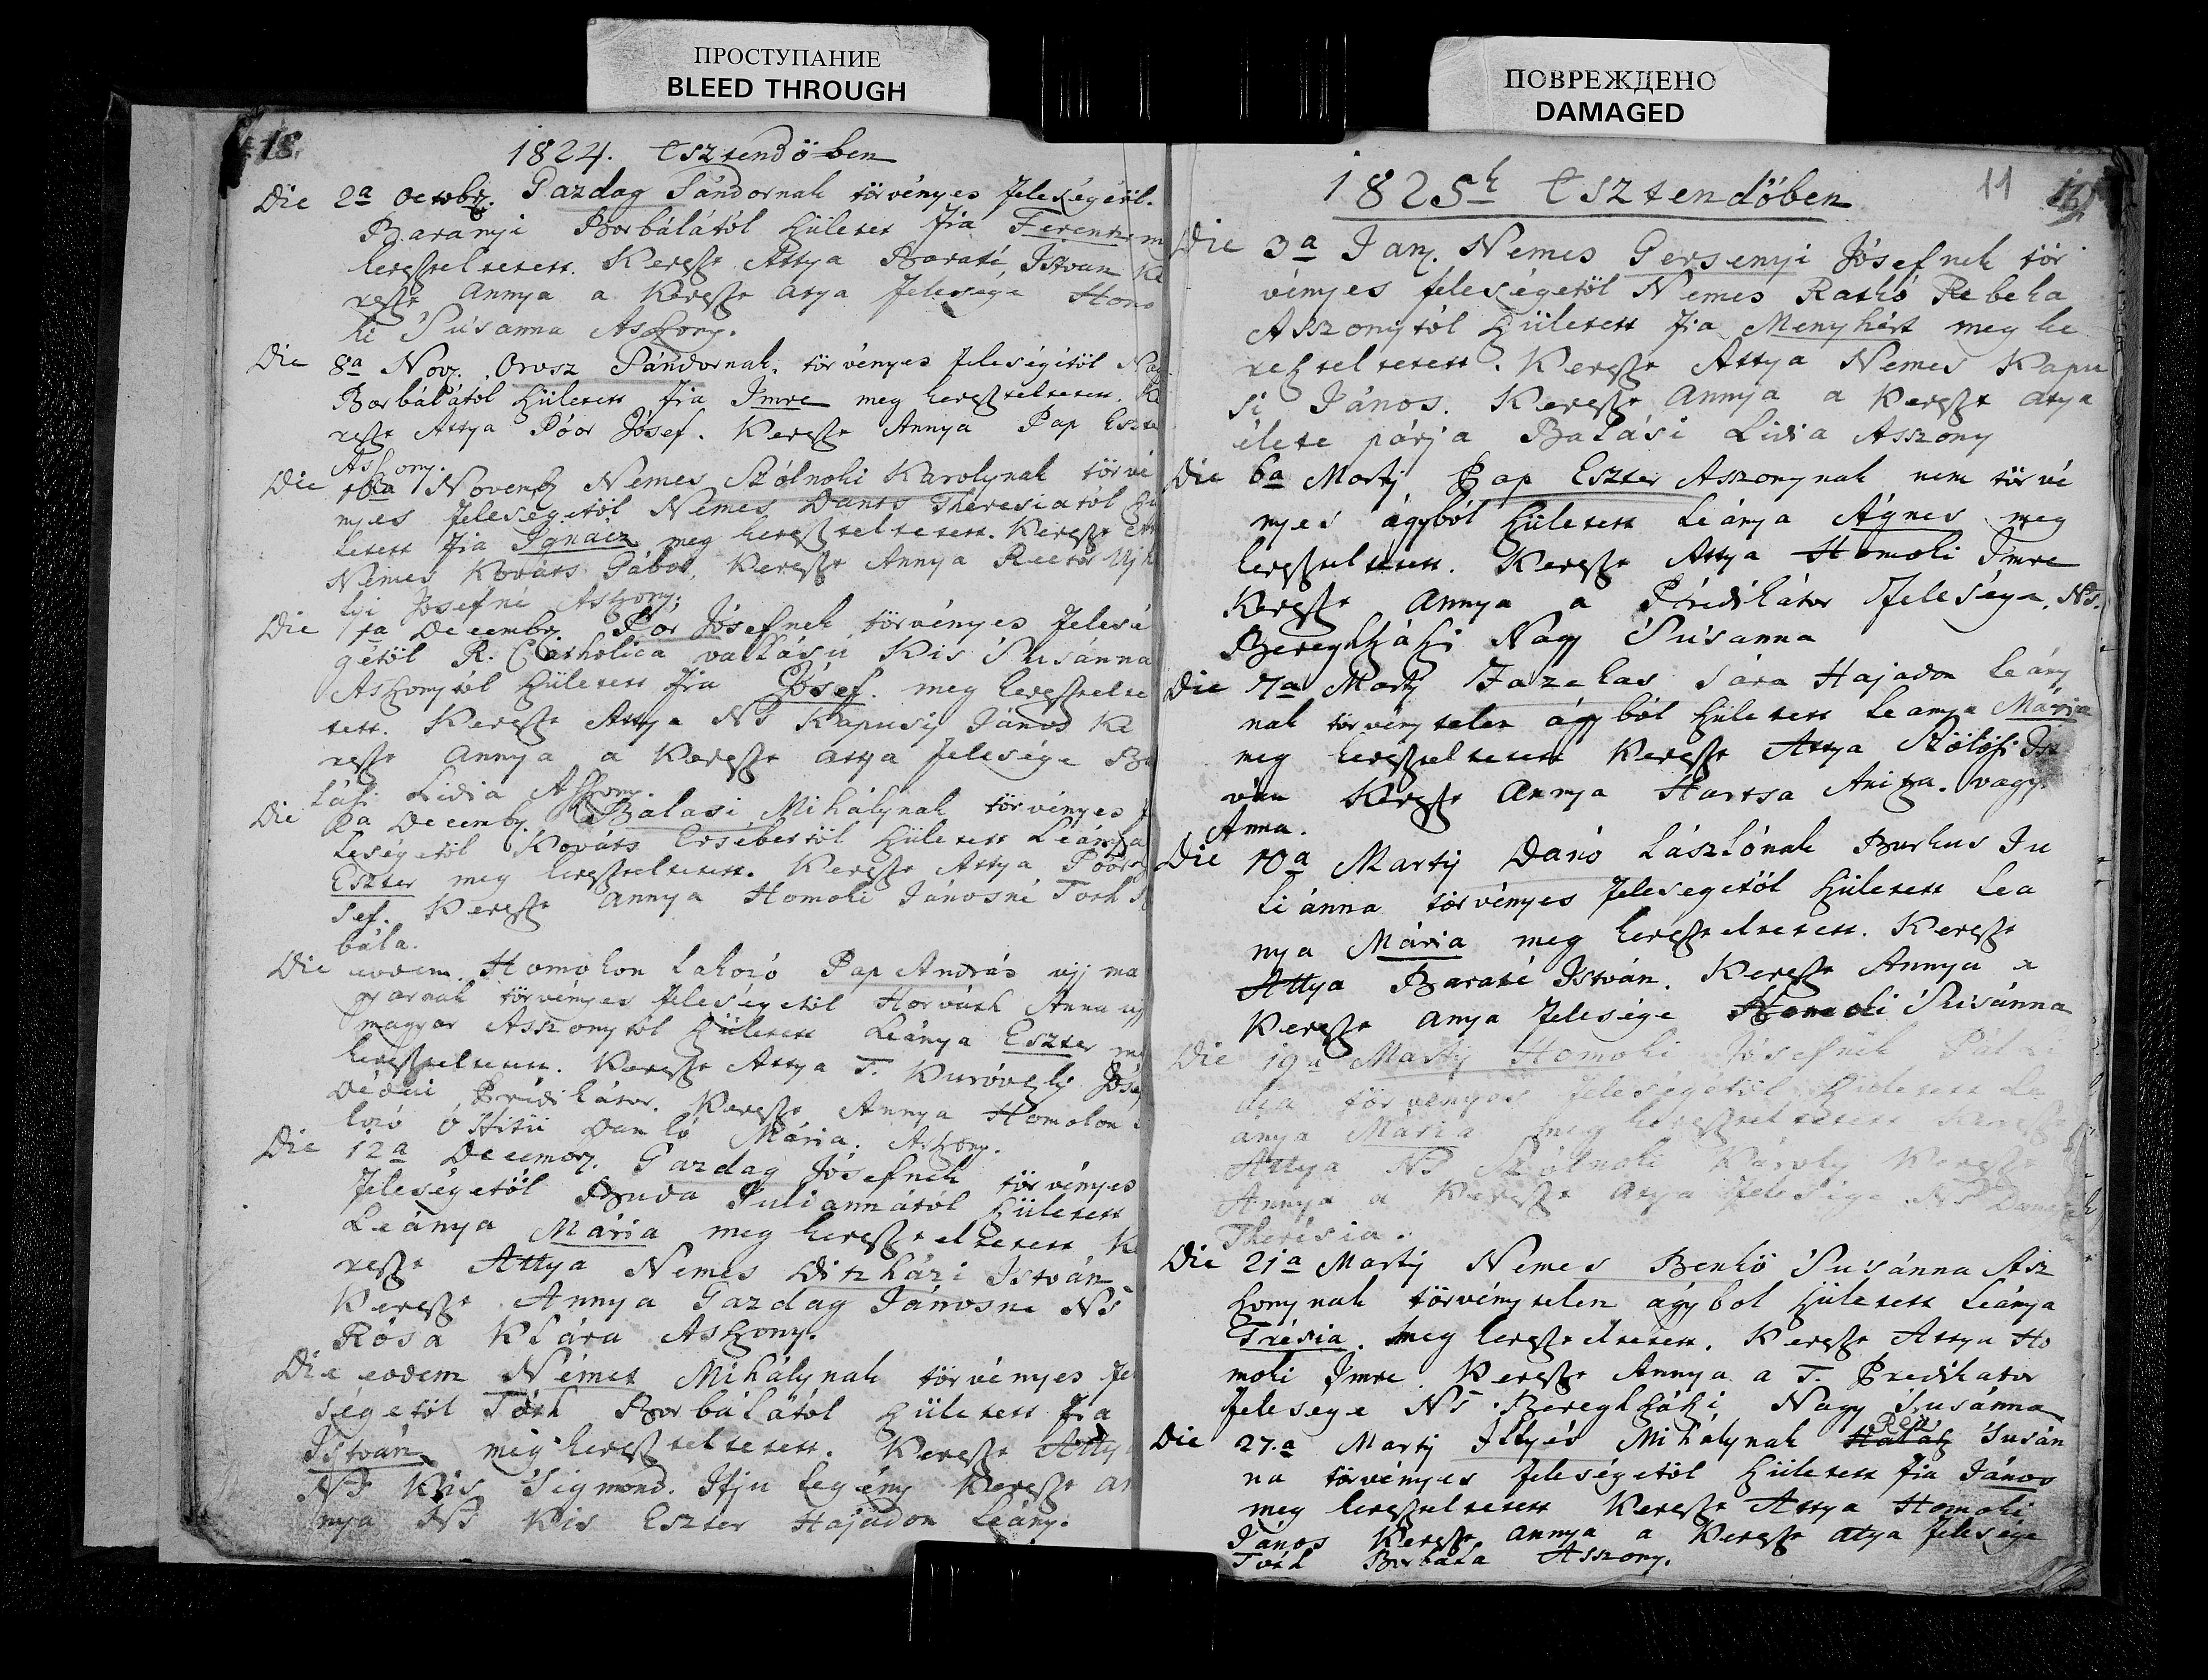 ПРОСТУПАНИЕ
BLEED THROUGH
ПОВРЕЖДЕНО
DAMAGED
18.
1824. Esztendőben
Die 2a Octobr. Gazdag Sándornak törvényes feleségétöl
Baranyi Borbálától születet fia Ferentz m
keresteltetett. Kereszt Attya Baraté Istvan Ke
reszt Annya a Kereszt atya felesége Homo
ki Susanna Aszony.
Die 8a Nov. Orosz Sándornak törvényes feleségitöl Nag
Borbálától született fia Imre meg kereszteltetett. Ke
reszt Attya Póor Jósef. Kereszt Annya Pap Eszte
Aszony.
Die 16a Novemb Nemes Szólnoki Karolynak törvé
nyes feleségitöl Nemes Dants Theresiatól szü
letett fia Ignácz meg kereszteltetett. Kereszt
Nemes Kováts Gábor, Kereszt Annya Rector Ujh
lyi Josefné Aszony.
Die 1a Decembr. Pór Jósefnek törvényes felesé
gétöl R. Catholica vallásu Kis Susánna
Aszonytól született fia Jósef meg keresztelte
tett. Kereszt Attya Ns Kapusij János Ke
reszt Annya a Kereszt attya felesége Ba
lási Lidia Aszony.
Die 2a Decembr. Balasi Mihálynak törvényes f
leségetöl Kováts Ersébettöl született Leánya
Eszter meg kereszteltetett. Kereszt Attya Póor
sef. Kereszt Annya Homoki Jánosné Toth
bála.
Die eodem Homokon Lakozó Pap András ujj ma
gyarnak törvényes feleségetöl Horváth Anna uj
magyar Asszonytól született Leánya Eszter me
kereszteltetett. Kereszt Attya T. Jóse
Dédai Prédikátor. Kereszt Annya Homokon
kozó Ó Hitü Dankó Mária. Aszony.
Die 12a Decembr. Gazdag Jósefnek törvényes
feleségetöl Buda Juliannától született
Leánya Mária meg kereszteltetett. Ke
reszt Attya Nemes Ditzházi István
Kereszt Annya Gazdag Jánosne Ns
Rósa Klára Aszony.
Die eodem Német Mihálynak törvényes fele
ségetöl Tóth Borbálától született fia
István meg kereszteltetett. Kereszt Attya
Ns Kis Sigmond. Ifju Legény Kereszt An
nya Ns Kis Eszter Hajadon Leány.
11
1825k Esztendőben
Die 3a Jan. Nemes Gersenyi Jósefnek tör
vényes feleségetöl Nemes Rathó Rebeka
Asszonytól született fia Menyhért meg ke
reszteltetett. Kereszt Attya Nemes Kapu
si János. Kereszt Annya a Kereszt atya
élete párja Balási Lidia Asszony
Die 6a Martij Pap Eszter Asszonynak nem törvé
nyes ágyból született Leánya Ágnes meg
kereszteltetett. Kereszt Attya Homoki Imre
Kereszt Annya a Prédikátor felesége. Ns.
Bereghszászi Nagy Susanna
Die 7a Martij Fazekas Sára Hajadon Leány
nak törvénytelen ágyból született Leanya Mária
meg kereszteltetett Kereszt Attya Szölösi Ist
ván Kereszt Annya Hartsa Anitza. vagy
Anna.
Die 10a Martij Danó Lászlónak Burkus Ju
liánna törvényes feleségetöl született Lea
nya Mária meg kereszteltetett. Kereszt
Attya Baraté István. Kereszt Annya a
Kereszt Atya felesége Homoki Susánna
Die 19a Martij Homoki Jósefnek
törvényes feleségétöl született Le
ánya Mária meg kereszteltetett Kereszt
Attya Ns Szólnoki Károly Kereszt
Annya a Kereszt Atya felesége Ns Dants
Therésia.
Die 21a Martij Nemes Benkö Susánna Asz
szonynak törvénytelen ágyból született Leánya
Trésia. meg kereszteltetett. Kereszt Attya Ho
moki Imre Kereszt Annya a T. Predikator
felesege Ns Bereghszászi Nagy Susánna
Die 27.a Martij Illyés Mihálynak Susán
na törvényes feleségetöl született fia János
meg kereszteltetett Kereszt Attya Homoki
Janos Kereszt Annya a Kereszt atya felesége
Tóth Borbála Asszony.